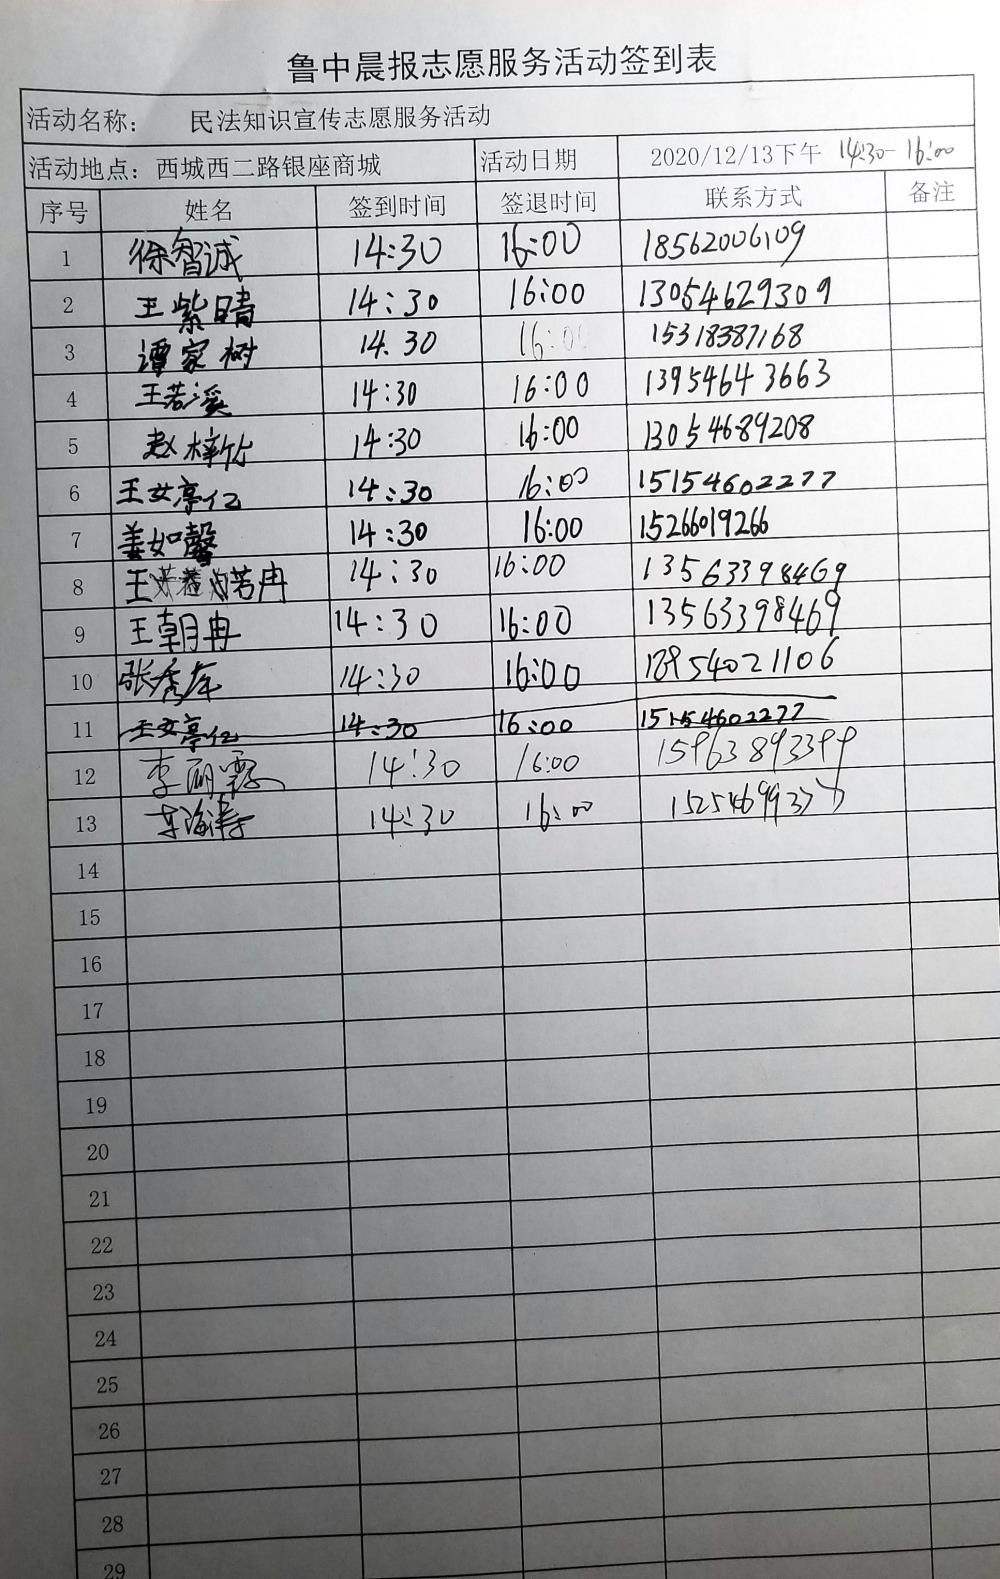 鲁中晨报志愿服务活动签到表
活动名称： 民法知识宣传志愿服务活动
活动地点：西城西二路银座商城 活动日期 2020/12/13下午 14:30-16:00
序号 姓名 签到时间 签退时间 联系方式 备注
1 徐智诚 14:30 16:00 18562006109
2 王紫晴 14:30 16:00 13054629309
3 谭家树 14.30 16:00 15318387168
4 王若溪 14:30 16:00 13954643663
5 赵梓竹 14:30 16:00 13054689208
6 王婷亿 14:30 16:00 15154602277
7 姜如馨 14:30 16:00 15266019266
8 王若冉 14:30 16:00 13563398469
9 王朝冉 14:30 16:00 13563398469
10 张秀 14:30 16:00 18954021106
11 王婷亿 14:30 16:00 15154602277
12 李 14:30 16:00
13 海涛 14:30 16:00
14
15
16
17
18
19
20
21
22
23
24
25
26
27
28
29